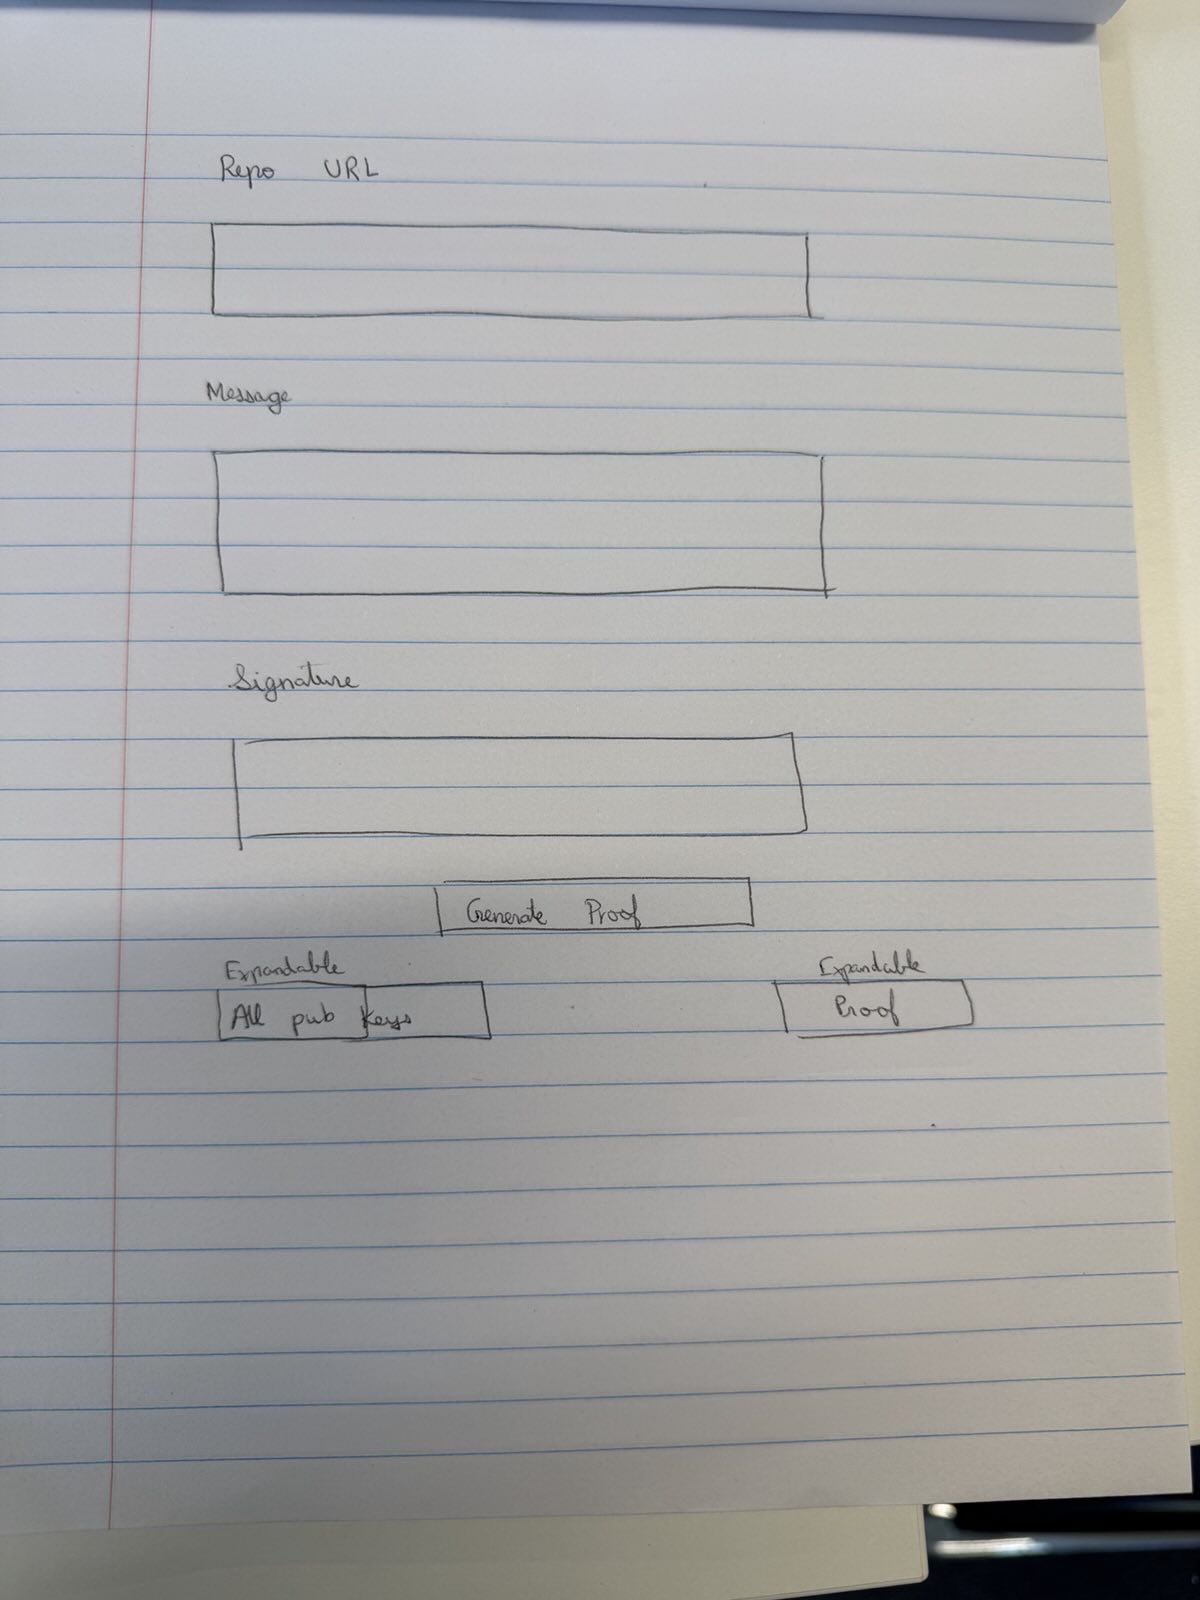 Repo URL
Message
Signature
Generate Proof
Expandable
All pub keys
Expandable
Proof